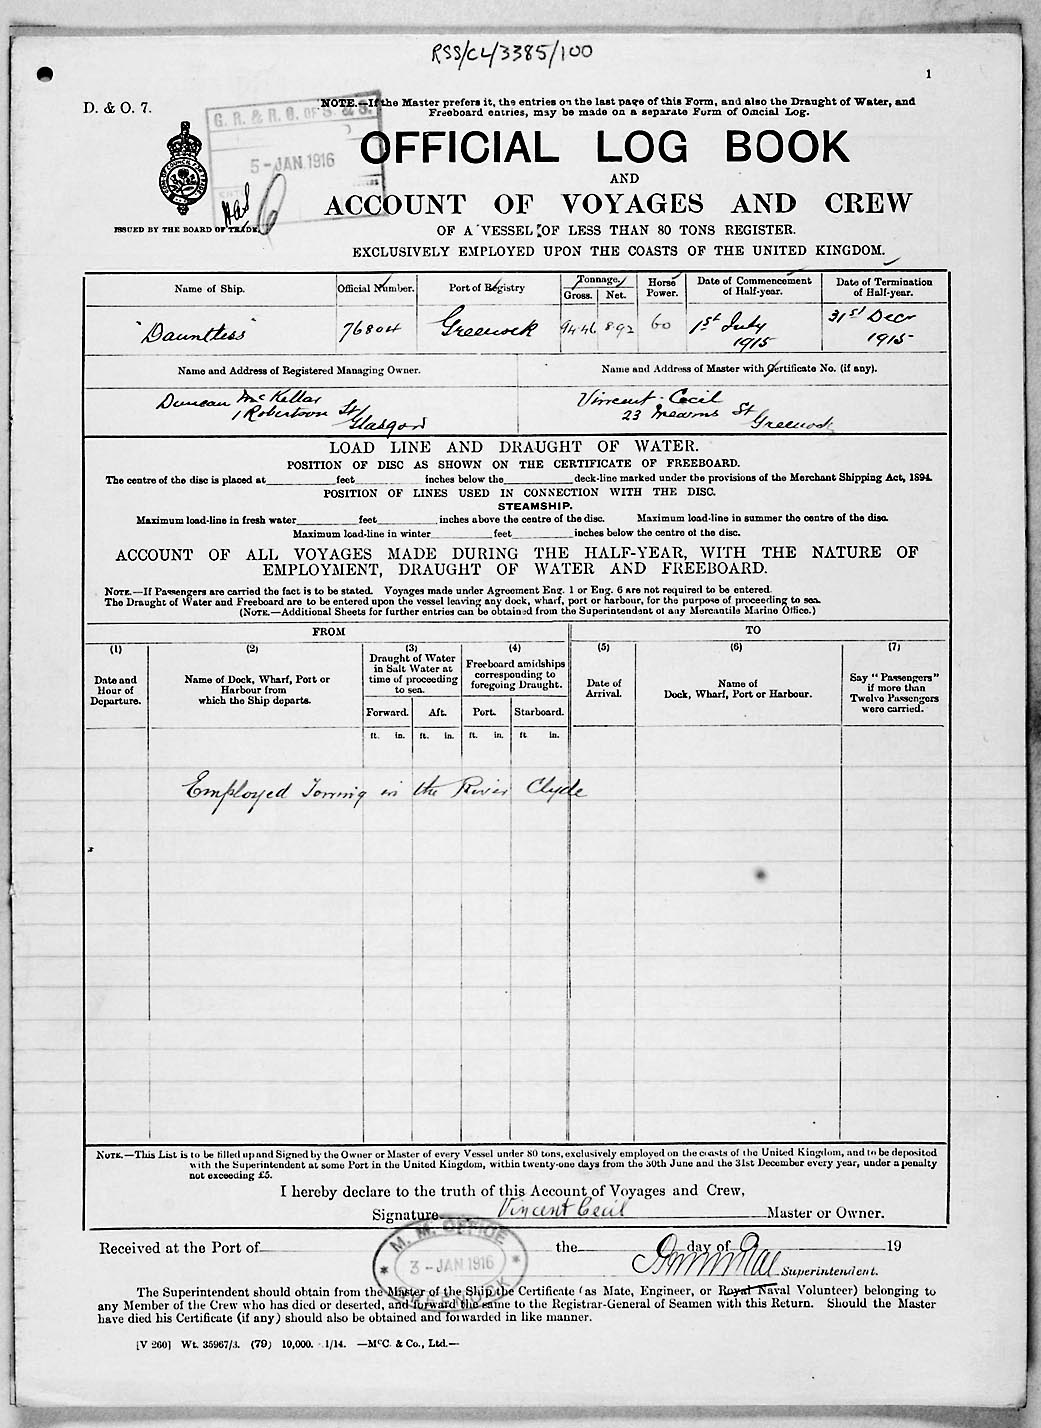 RSS/CL/3385/100
1
D. & O. 7.
NOTE.—If the Master prefers it, the entries on the last page of this Form, and also the Draught of Water, and
Freeboard entries, may be made on a separate Form of Official Log.
G. R. & R. G. OF S. & S.
5-JAN.1916
OFFICIAL LOG BOOK
AND
ACCOUNT OF VOYAGES AND CREW
ISSUED BY THE BOARD OF TRADE.
OF A VESSEL OF LESS THAN 80 TONS REGISTER.
EXCLUSIVELY EMPLOYED UPON THE COASTS OF THE UNITED KINGDOM.
Name of Ship. Official Number. Port of Registry Tonnage. Gross. Net. Horse Power. Date of Commencement of Half-year. Date of Termination of Half-year.
"Dauntless" 76804 Greenock 94.46 8.92 60 1st July 1915 31st Decr 1915
Name and Address of Registered Managing Owner. Name and Address of Master with Certificate No. (if any).
Duncan McKellar Vincent Cecil
1 Robertson St 23 Mearns St
Glasgow Greenock
LOAD LINE AND DRAUGHT OF WATER.
POSITION OF DISC AS SHOWN ON THE CERTIFICATE OF FREEBOARD.
The centre of the disc is placed at feet inches below the deck-line marked under the provisions of the Merchant Shipping Act, 1894.
POSITION OF LINES USED IN CONNECTION WITH THE DISC.
STEAMSHIP.
Maximum load-line in fresh water feet inches above the centre of the disc. Maximum load-line in summer the centre of the disc.
Maximum load-line in winter feet inches below the centre of the disc.
ACCOUNT OF ALL VOYAGES MADE DURING THE HALF-YEAR, WITH THE NATURE OF
EMPLOYMENT, DRAUGHT OF WATER AND FREEBOARD.
NOTE.—If Passengers are carried the fact is to be stated. Voyages made under Agreement Eng. 1 or Eng. 6 are not required to be entered.
The Draught of Water and Freeboard are to be entered upon the vessel leaving any dock, wharf, port or harbour, for the purpose of proceeding to sea.
(NOTE.—Additional Sheets for further entries can be obtained from the Superintendent of any Mercantile Marine Office.)
FROM TO
(1) (2) (3) (4) (5) (6) (7)
Date and Hour of Departure. Name of Dock, Wharf, Port or Harbour from which the Ship departs. Draught of Water in Salt Water at time of proceeding to sea. Freeboard amidships corresponding to foregoing Draught. Date of Arrival. Name of Dock, Wharf, Port or Harbour. Say "Passengers" if more than Twelve Passengers were carried.
Forward. Aft. Port. Starboard.
ft. in. ft. in. ft. in. ft in.
Employed Towing in the River Clyde
NOTE.—This List is to be filled up and Signed by the Owner or Master of every Vessel under 80 tons, exclusively employed on the coasts of the United Kingdom, and to be deposited
with the Superintendent at some Port in the United Kingdom, within twenty-one days from the 30th June and the 31st December every year, under a penalty
not exceeding £5.
I hereby declare to the truth of this Account of Voyages and Crew,
Signature Vincent Cecil Master or Owner.
M. M. OFFICE
3-JAN.1916
GREENOCK
Received at the Port of the day of 19
Superintendent.
The Superintendent should obtain from the Master of the Ship the Certificate (as Mate, Engineer, or Royal Naval Volunteer) belonging to
any Member of the Crew who has died or deserted, and forward the same to the Registrar-General of Seamen with this Return. Should the Master
have died his Certificate (if any) should also be obtained and forwarded in like manner.
[V 260] Wt. 35967/3. (79) 10,000. 1/14. —McC. & Co., Ltd.—